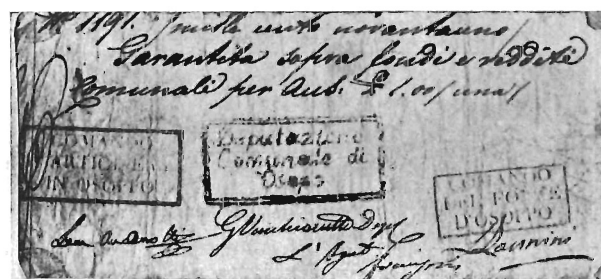 N.º 1191. / mille cento novantauno /
Garantita sopra fondi e reddite
Comunali per Aus. £ 1.00 / una /
COMANDO
ARTIGLIERIA
IN OSOPPO
Deputazione
Comunale di
Osopo
COMANDO
DEL FORTE
D'OSOPPO
L'Agnt